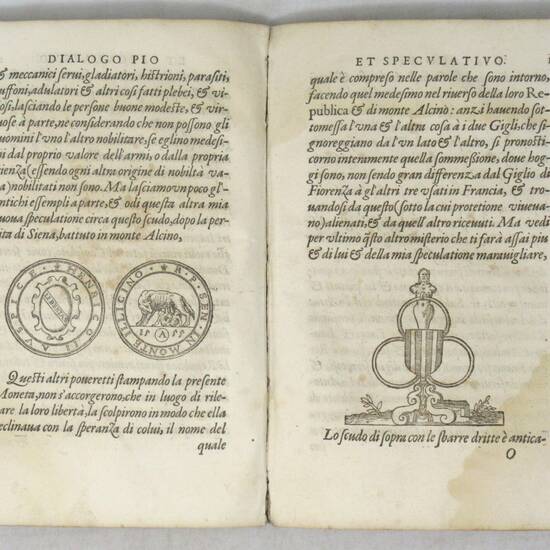 DIALOGO PIO
& meccanici serui, gladiatori, histrioni, parasiti,
uffoni, adulatori & altri cosi fatti plebei, & vi-
osi, lasciando le persone buone modeste, & vir-
uose à parte, ne considerando che non possono gli
uomini l'vno l'altro nobilitare, se eglino medesi-
mi dal proprio valore dell'armi, o dalla propria
ienza (essendo ogni altra origine di nobiltà va-
a) nobilitati non sono. Ma lasciamo vn poco gl'
ntichi essempli a parte, & odi questa altra mia
uoua speculatione circa questo scudo, dopo la per
ita di Siena, battuto in monte Alcino,
HENRICO II AVSPICE
R. P. SEN. IN MONTE ILICINO
Questi altri poueretti stampando la presente
Moneta, non s'accorgerono, che in luogo di rile-
are la loro libertà, la scolpirono in modo che ella
eclinaua con la speranza di colui, il nome del
quale
ET SPECVLATIVO.
quale è compreso nelle parole che sono intorno,
facendo quel medesimo nel riuerso della loro Re-
publica & di monte Alcino: anzi hauendo sot-
tomessa l'una & l'altra cosa à i due Gigli, che si-
gnoreggiano da l'un lato & l'altro, si pronosti-
corno intenamente quella sommessione, doue hog-
gi sono, non sendo gran differenza dal Giglio di
Fiorenza à gl'altri tre vsati in Francia, & tro-
uandosi da questo (sotto la cui protetione viueua-
no) alienati, & da quell'altro riceuuti. Ma vedi
per vltimo q̃sto altro misterio che ti farà assai piu
& di lui & della mia speculatione marauigliare,
Lo scudo di sopra con le sbarre dritte è antica-
O